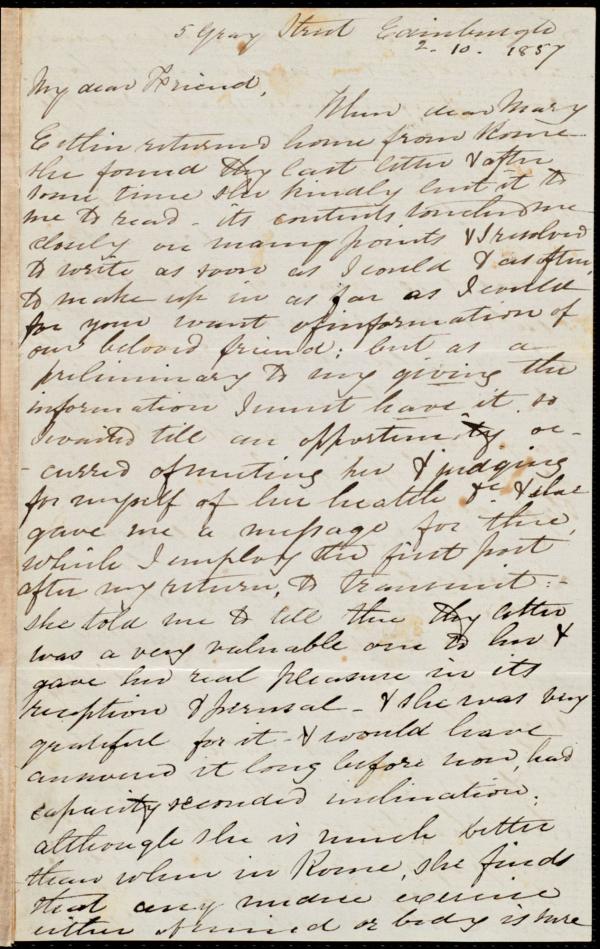 5 Gray Street Edinburgh
2. 10. 1857
My dear Friend,
When dear Mary
Estlin returned home from Rome
she found thy last letter & after
some time she kindly lent it to
me to read - its contents touched me
closely on many points & I resolved
to write as soon as I could & as often,
to make up in as far as I could
for your want of information of
our beloved friend: but as a
preliminary to my giving the
information I must have it, so
I waited till an opportunity oc-
-curred of meeting her & judging
for myself of her health &c. & she
gave me a message for thee,
which I employ the first post
after my return, to transmit:-
she told me to tell thee thy letter
was a very valuable one to her &
gave her real pleasure in its
reception & perusal - & she was very
grateful for it - & would have
answered it long before now, had
capacity seconded inclination.
although she is much better
than when in Rome, she finds
that any undue exercise
either of mind or body is sure